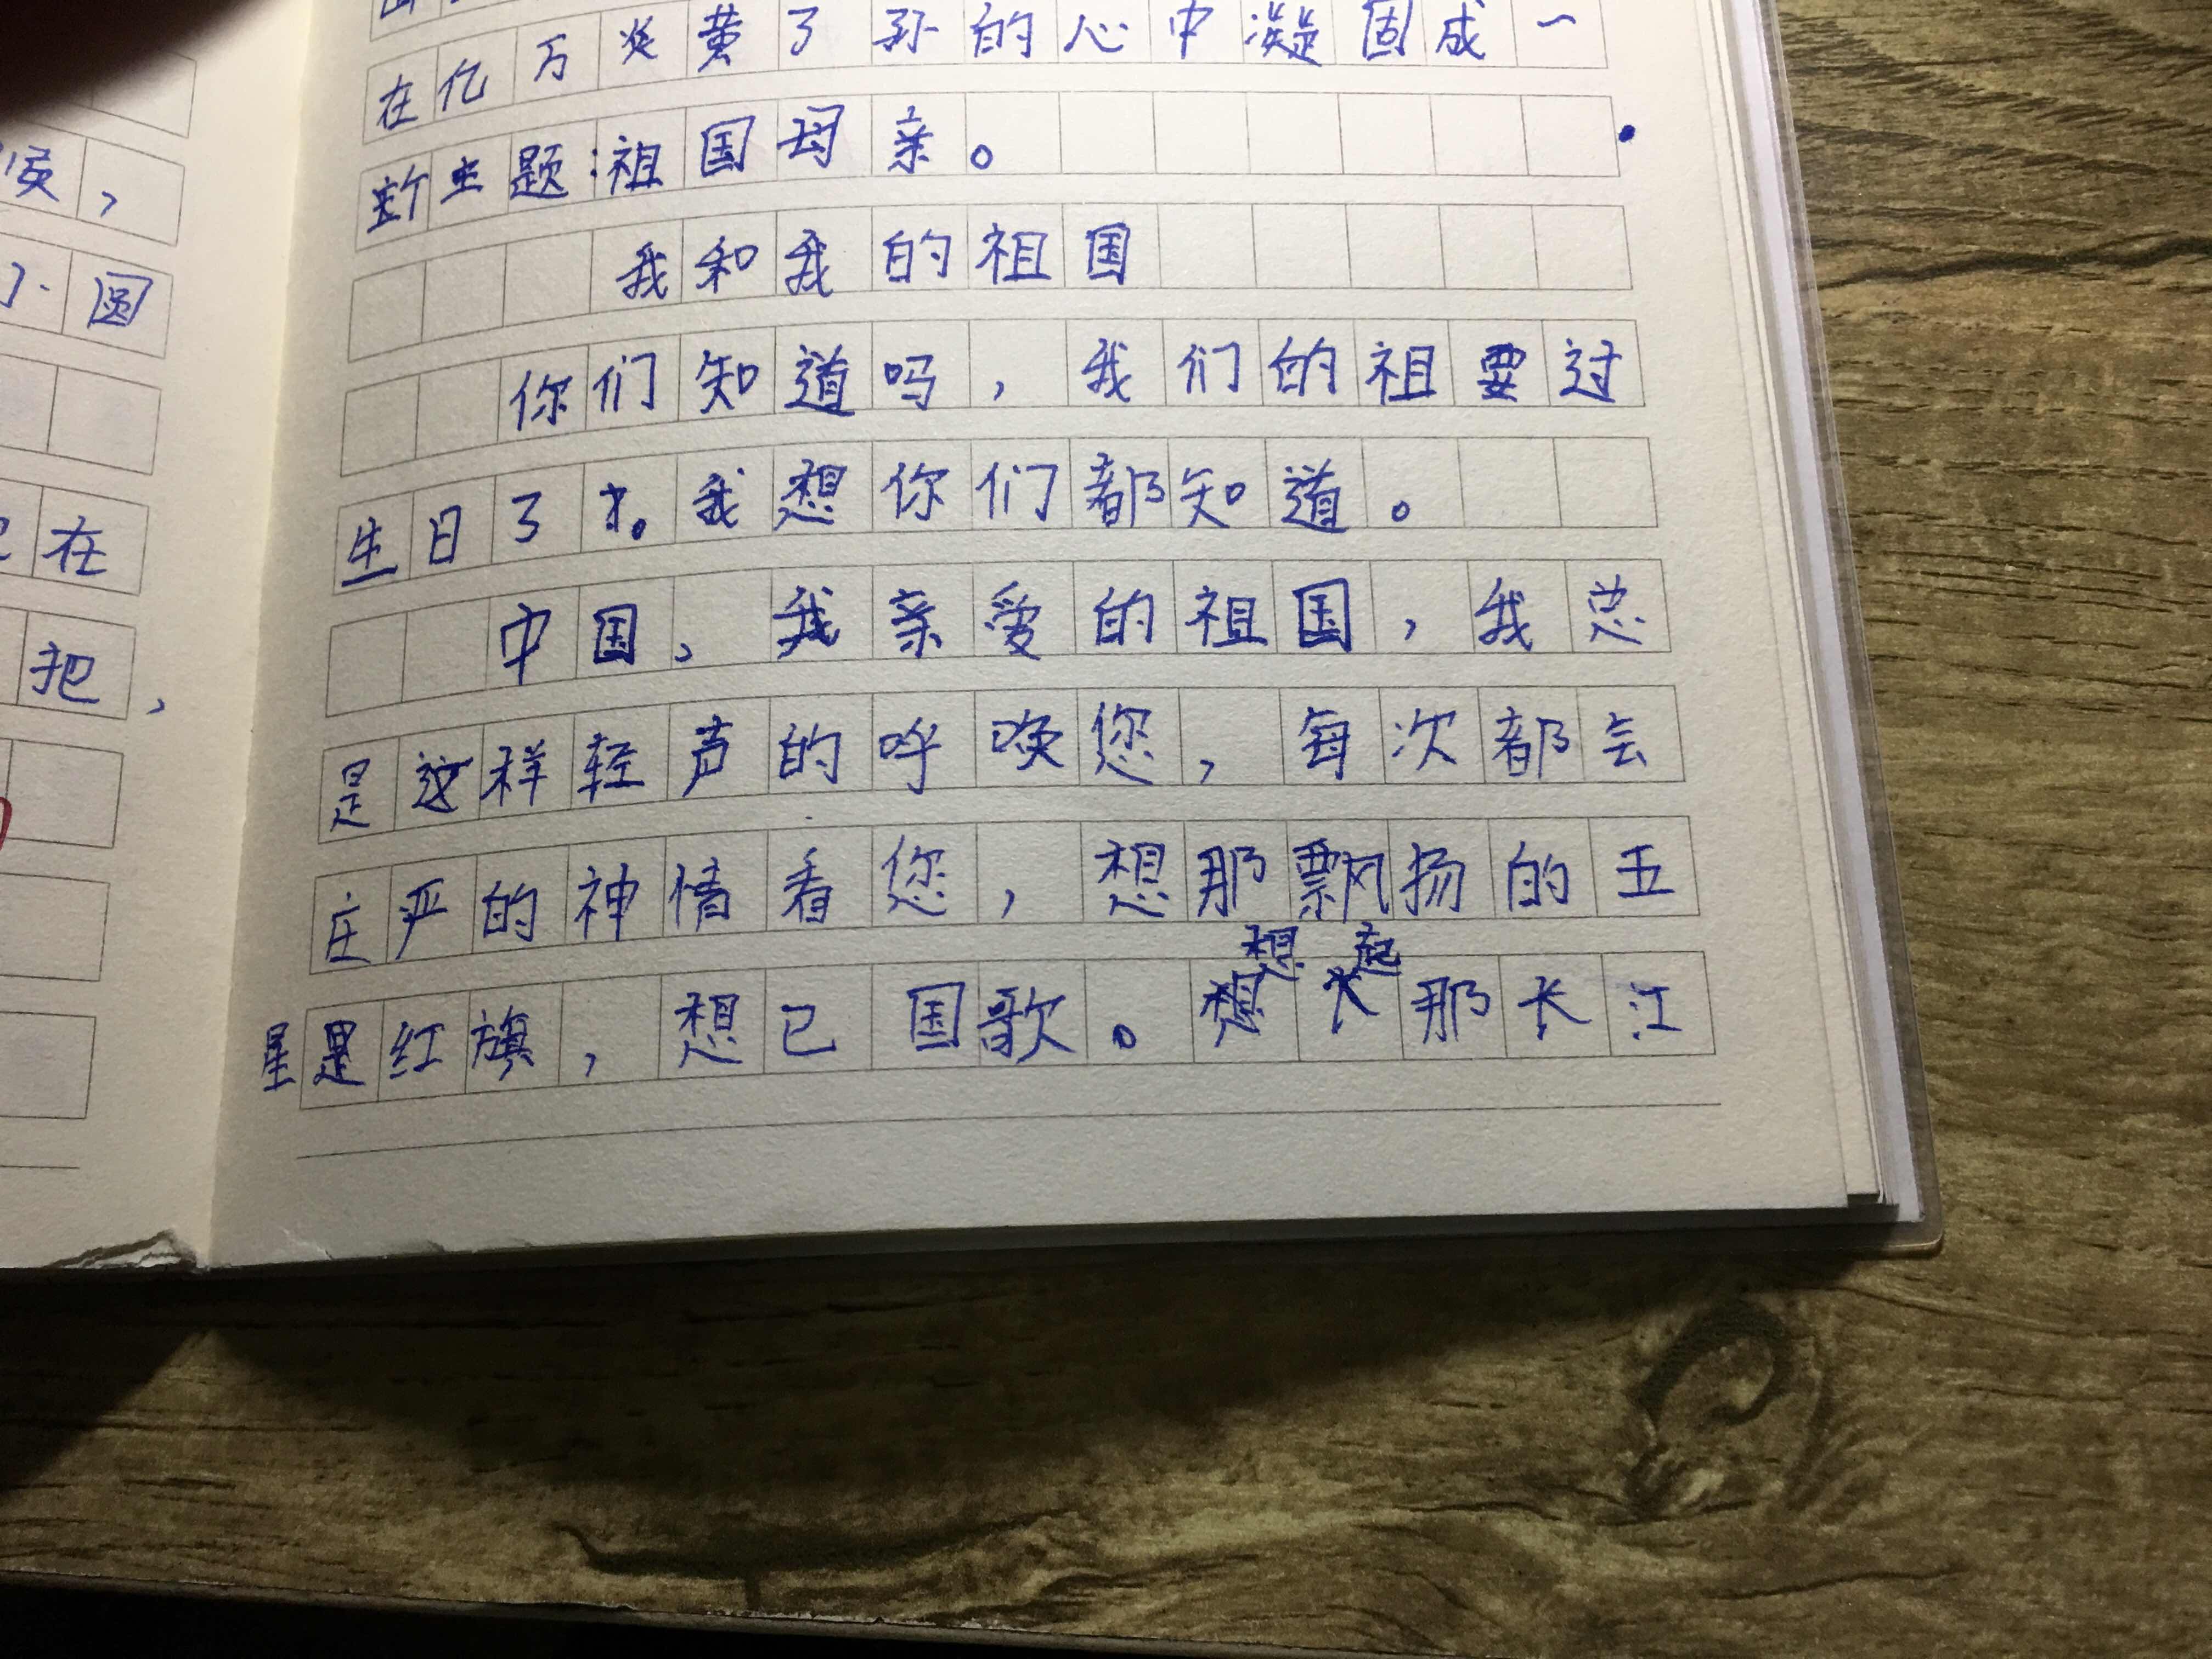 在亿万炎黄了孙的心中凝固成一
主题:祖国母亲。
我和我的祖国
你们知道吗,我们的祖要过
生日了。我想你们都知道。
中国,我亲爱的祖国,我总
是这样轻声的呼唤您,每次都会
庄严的神情看您,想那飘扬的五
星红旗,想已国歌。想起那长江
小圆
在
把,